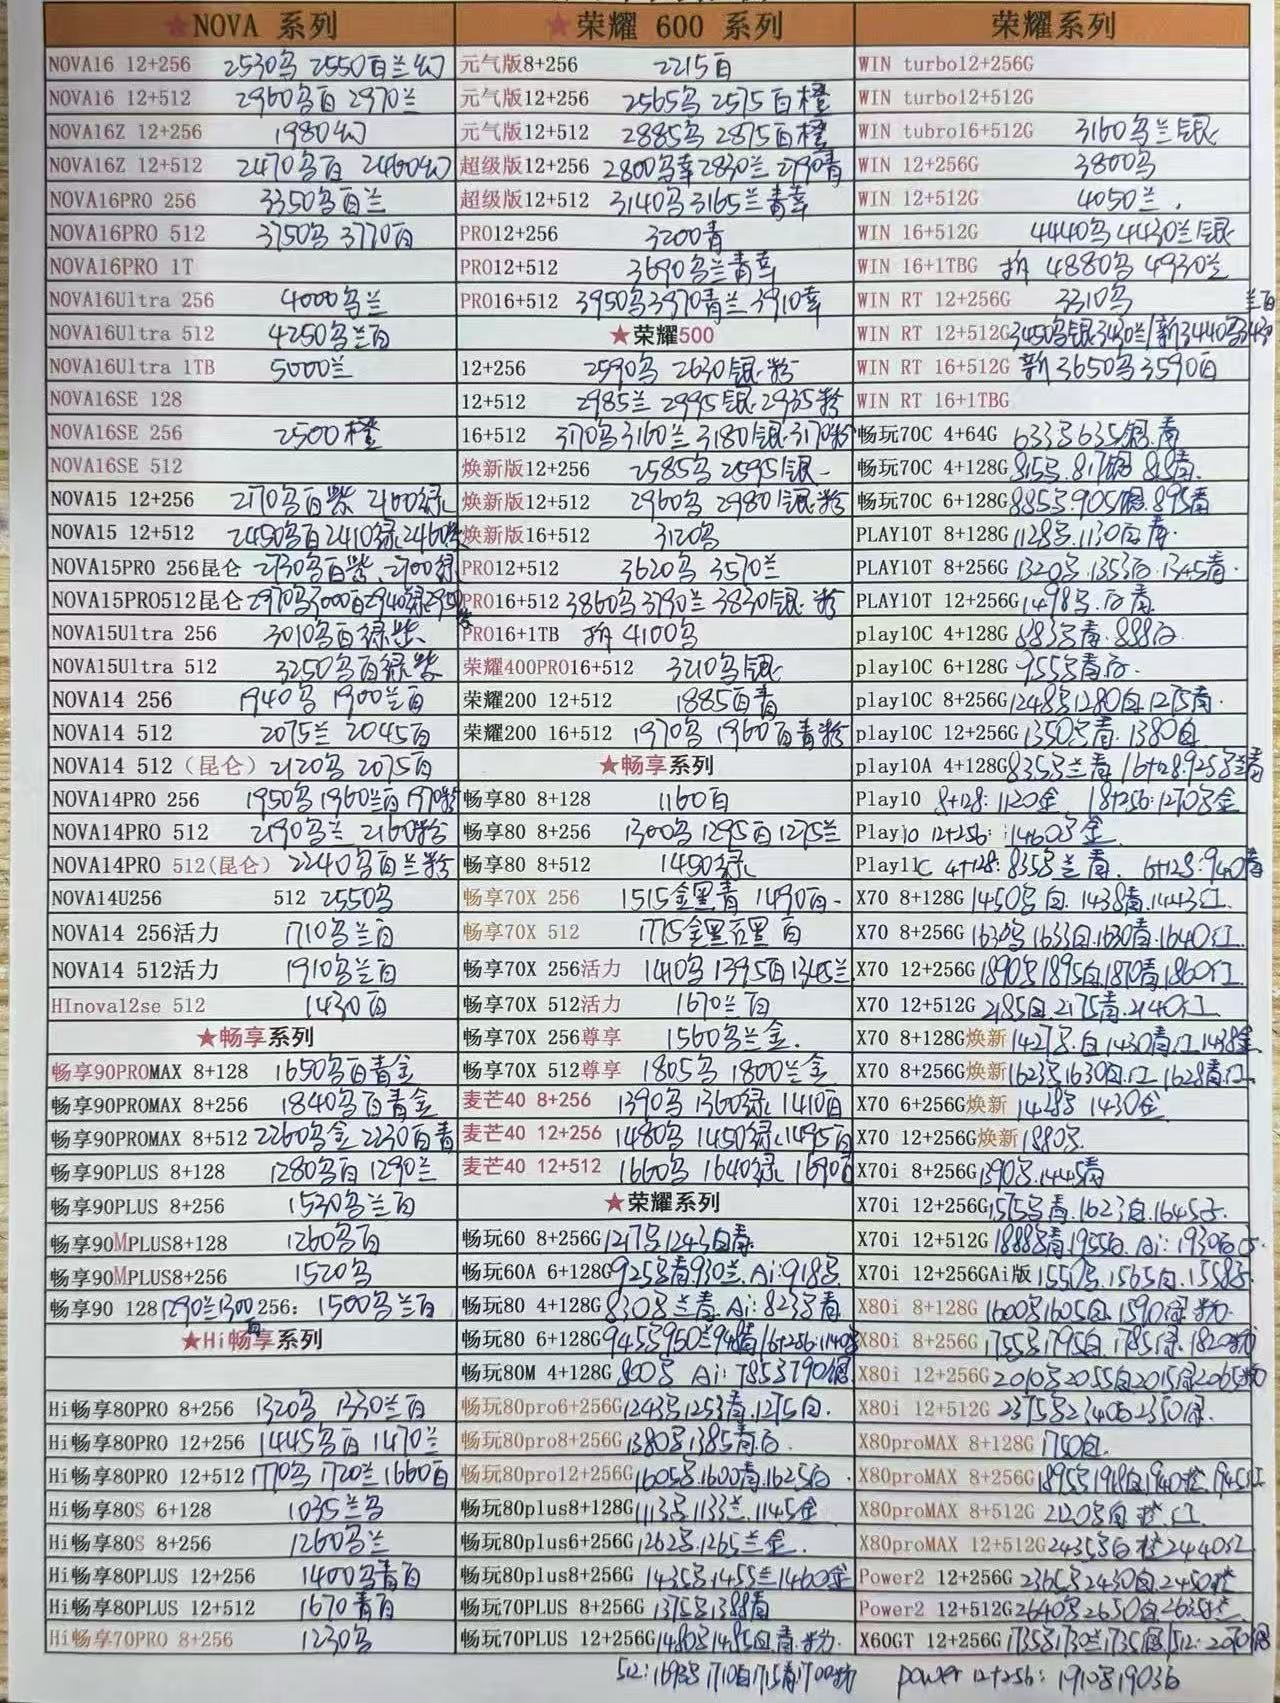 ★NOVA 系列
NOVA16 12+256 2530乌 2550百兰幻
NOVA16 12+512 2960乌百 2970兰
NOVA16Z 12+256 1980幻
NOVA16Z 12+512 2470乌百 2460幻
NOVA16PRO 256 3350乌百兰
NOVA16PRO 512 3750乌 3770百
NOVA16PRO 1T
NOVA16Ultra 256 4000乌兰
NOVA16Ultra 512 4250乌兰百
NOVA16Ultra 1TB 5000兰
NOVA16SE 128
NOVA16SE 256 2500橙
NOVA16SE 512
NOVA15 12+256 2170乌百紫 2100绿
NOVA15 12+512 2450乌百2410绿2460紫
NOVA15PRO 256昆仑 2730乌百紫 2700绿
NOVA15PRO512昆仑 2970乌3000百2940绿2950紫
NOVA15Ultra 256 3010乌百绿紫
NOVA15Ultra 512 3250乌百绿紫
NOVA14 256 1940乌 1900兰百
NOVA14 512 2075兰 2045百
NOVA14 512（昆仑） 2120乌 2075百
NOVA14PRO 256 1950乌1960兰百1970粉
NOVA14PRO 512 2190乌兰 2160粉
NOVA14PRO 512(昆仑) 2240乌百兰粉
NOVA14U256 512 2550乌
NOVA14 256活力 1710乌兰百
NOVA14 512活力 1910乌兰百
HInova12se 512 1430百
★畅享系列
畅享90PROMAX 8+128 1650乌百青金
畅享90PROMAX 8+256 1840乌百青金
畅享90PROMAX 8+512 2260乌金 2230百青
畅享90PLUS 8+128 1280乌百 1290兰
畅享90PLUS 8+256 1530乌兰百
畅享90MPLUS8+128 1260乌百
畅享90MPLUS8+256 1520乌
畅享90 128 1290兰1300百 256: 1500乌兰百
★Hi畅享系列
Hi畅享80PRO 8+256 1320乌 1330兰百
Hi畅享80PRO 12+256 1445乌百 1470兰
Hi畅享80PRO 12+512 1770乌 1720兰 1660百
Hi畅享80S 6+128 1035兰乌
Hi畅享80S 8+256 1260乌兰
Hi畅享80PLUS 12+256 1400乌青百
Hi畅享80PLUS 12+512 1670青百
Hi畅享70PRO 8+256 1230乌
★荣耀 600 系列
元气版8+256 2215百
元气版12+256 2565乌 2575百橙
元气版12+512 2885乌 2875百橙
超级版12+256 2800乌幸2830兰 2790青
超级版12+512 3140乌3165兰青幸
PRO12+256 3200青
PRO12+512 3690乌兰青幸
PRO16+512 3950乌3970青兰 3910幸
★荣耀500
12+256 2590乌 2630银.粉
12+512 2985兰 2995银.2935粉
16+512 3170乌3160兰3180银.3170粉
焕新版12+256 2585乌 2595银
焕新版12+512 2960乌 2980银.粉
焕新版16+512 3120乌
PRO12+512 3620乌 3570兰
PRO16+512 3860乌3790兰 3830银.粉
PRO16+1TB 拆 4100乌
荣耀400PRO16+512 3210乌银
荣耀200 12+512 1885百青
荣耀200 16+512 1970乌 1960百青粉
★畅享系列
畅享80 8+128 1160百
畅享80 8+256 1300乌 1295百 1275兰
畅享80 8+512 1450绿
畅享70X 256 1515金黑青 1490百
畅享70X 512 1775金黑 百
畅享70X 256活力 1410乌 1395百1345兰
畅享70X 512活力 1670兰百
畅享70X 256尊享 1560乌兰金.
畅享70X 512尊享 1805乌 1800兰金
麦芒40 8+256 1390乌 1360绿.1410百
麦芒40 12+256 1480乌 1450绿.1495百
麦芒40 12+512 1660乌 1640绿.1690百
★荣耀系列
畅玩60 8+256G 1217乌1243白青.
畅玩60A 6+128G 925乌青930兰.Ai:918乌
畅玩80 4+128G 830乌兰青.Ai:823乌青
畅玩80 6+128G 945乌950兰948青
畅玩80M 4+128G 800乌 Ai:785乌790银
畅玩80pro6+256G 1243乌1253青.1275白.
畅玩80pro8+256G 1380乌1385青白.
畅玩80pro12+256G 1605乌1600青.1625白
畅玩80plus8+128G 1113乌.1133兰.1145金
畅玩80plus6+256G 1262乌.1265兰金.
畅玩80plus8+256G 1435乌1455兰1460金
畅玩70PLUS 8+256G 1375乌1388青
畅玩70PLUS 12+256G 1480乌1485白青.粉.
512:1698乌1710白1715青1700粉
荣耀系列
WIN turbo12+256G
WIN turbo12+512G
WIN tubro16+512G 3160乌兰银
WIN 12+256G 3800乌
WIN 12+512G 4050兰.
WIN 16+512G 4440乌 4430兰银
WIN 16+1TBG 拆 4880乌 4930兰
WIN RT 12+256G 3310乌
WIN RT 12+512G 3450乌银3430兰/新3440乌3430兰百
WIN RT 16+512G 新3650乌3590百
WIN RT 16+1TBG
畅玩70C 4+64G 633乌635银.青
畅玩70C 4+128G 815乌.817银.818青.
畅玩70C 6+128G 885乌.905银.895青
PLAY10T 8+128G 1128乌.1130白青.
PLAY10T 8+256G 1320乌.1353白.1345青.
PLAY10T 12+256G 1498乌.白青
play10C 4+128G 883乌青.888白.
play10C 6+128G 955乌青白.
play10C 8+256G 1248乌1280白1275青.
play10C 12+256G 1350乌青.1380白
play10A 4+128G 835乌兰青 6+128:925乌兰青
Play10 8+128:1120金 8+256:1270乌金
Play10 12+256:1460乌金
Play11C 4+128:835乌兰青. 6+128:940青
X70 8+128G 1450乌白.1438青.1443红.
X70 8+256G 1630乌1633白.1630青.1640红.
X70 12+256G 1890乌1895白1870青1860红.
X70 12+512G 2185白2175青.2140红.
X70 8+128G焕新 1427乌.白1430青红.1438金
X70 8+256G焕新 1623乌1630白.红.1628青.
X70 6+256G焕新 1428乌 1430金
X70 12+256G焕新 1880乌.
X70i 8+256G 1390乌.1445青
X70i 12+256G 1515乌青.1623白.1645
X70i 12+512G 1888乌青1955白.Ai:1930白
X70i 12+256GAi版 1550乌.1565白.1558
X80i 8+128G 1600乌1605白.1590绿.粉.
X80i 8+256G 1755乌1795白.1785绿.1820粉
X80i 12+256G 2010乌2055白2015绿2065粉
X80i 12+512G 2375乌2340白2350绿.
X80proMAX 8+128G 1750白.
X80proMAX 8+256G 1895乌1918白1940橙.1945红
X80proMAX 8+512G 2120乌白橙.红.
X80proMAX 12+512G 2435乌白橙2440红
Power2 12+256G 2365乌2430白.2450橙
Power2 12+512G 2640乌2650白.2635橙.
X60GT 12+256G 1735乌1730兰1735银/512:2070银
power 12+256: 1910乌1903白